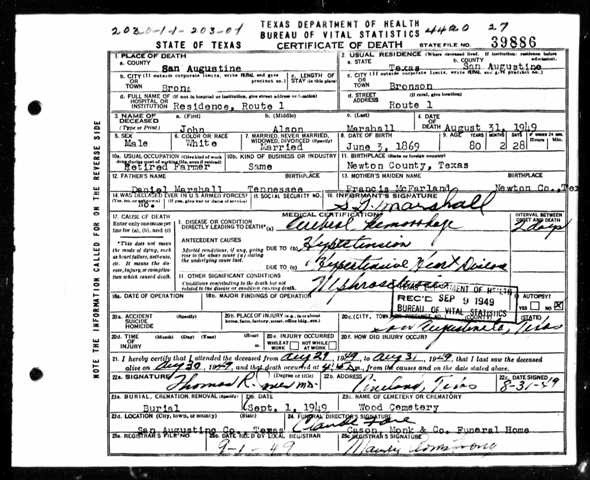 2020-1-1-203-01
TEXAS DEPARTMENT OF HEALTH
BUREAU OF VITAL STATISTICS
4420 27
STATE OF TEXAS
CERTIFICATE OF DEATH
STATE FILE NO. 39886
NOTE THE INFORMATION CALLED FOR ON THE REVERSE SIDE
1. PLACE OF DEATH
a. COUNTY
San Augustine
2. USUAL RESIDENCE (Where deceased lived. If institution: residence before admission)
a. STATE
Texas
b. COUNTY
San Augustine
b. CITY (If outside corporate limits, write RURAL and give precinct no.)
OR
TOWN
Bron
c. LENGTH OF STAY (in this place)
c. CITY (If outside corporate limits, write RURAL and give precinct no.)
OR
TOWN
Bronson
d. FULL NAME OF (If not in hospital or institution, give street address or location)
HOSPITAL OR
INSTITUTION
Residence, Route 1
d. STREET ADDRESS (If rural, give location)
Route 1
3. NAME OF DECEASED
(Type or Print)
a. (First)
John
b. (Middle)
Alson
c. (Last)
Marshall
4. DATE OF DEATH
August 31, 1949
5. SEX
Male
6. COLOR OR RACE
White
7. MARRIED, NEVER MARRIED, WIDOWED, DIVORCED (Specify)
Married
8. DATE OF BIRTH
June 3, 1869
9. AGE YEARS MONTHS DAYS
80 2 28
10a. USUAL OCCUPATION (Give kind of work done during most of working life, even if retired)
Retired Farmer
10b. KIND OF BUSINESS OR INDUSTRY
Same
11. BIRTHPLACE (State or foreign country)
Newton County, Texas
12. FATHER'S NAME
BIRTHPLACE
Daniel Marshall Tennessee
13. MOTHER'S MAIDEN NAME
BIRTHPLACE
Francis McFarland Newton Co., Tex
14. WAS DECEASED EVER IN U.S. ARMED FORCES?
no.
15. SOCIAL SECURITY NO.
16. INFORMANT'S SIGNATURE
Marshall
17. CAUSE OF DEATH
Enter only one cause per line for (a), (b), and (c)
*This does not mean the mode of dying, such as heart failure, asthenia, etc. It means the disease, injury, or complication which caused death.
MEDICAL CERTIFICATION
INTERVAL BETWEEN ONSET AND DEATH
I. DISEASE OR CONDITION DIRECTLY LEADING TO DEATH* (a)
Cerebral Hemorrhage
2 days
ANTECEDENT CAUSES
Morbid conditions, if any, giving rise to the above cause (a) stating the underlying cause last.
DUE TO (b)
Hypertension
DUE TO (c)
Hypertensive Heart Disease
II. OTHER SIGNIFICANT CONDITIONS
Conditions contributing to the death but not related to the disease or condition causing death.
Nephrosclerosis
TEXAS DEPARTMENT OF HEALTH
REC'D SEP 9 1949
BUREAU OF VITAL STATISTICS
18a. DATE OF OPERATION
18b. MAJOR FINDINGS OF OPERATION
19. AUTOPSY?
YES NO
20a. ACCIDENT SUICIDE HOMICIDE (Specify)
20b. PLACE OF INJURY
20c. (CITY, TOWN (COUNTY) (STATE)
San Augustine Co Texas
20d. TIME OF INJURY
20e. INJURY OCCURRED
WHILE AT WORK NOT WHILE AT WORK
20f. HOW DID INJURY OCCUR?
21. I hereby certify that I attended the deceased from Aug 29, 1949, to Aug 31, 1949, that I last saw the deceased
alive on Aug 30, 1949, and that death occurred at m., from the causes and on the date stated above.
22a. SIGNATURE (Degree or title)
Thomas R. Jones MD.
22b. ADDRESS
Pineland, Texas
22c. DATE SIGNED
8-31-49
23a. BURIAL, CREMATION, REMOVAL (Specify)
Burial
23b. DATE
Sept. 1, 1949
23c. NAME OF CEMETERY OR CREMATORY
Wood Cemetery
23d. LOCATION (City, town, or county) (State)
San Augustine Co., Texas
24. FUNERAL DIRECTOR'S SIGNATURE
Claude
Cason, Monk & Co. Funeral Home
25a. REGISTRAR'S FILE NO.
25b. DATE REC'D BY LOCAL REGISTRAR
9-1-49
25c. REGISTRAR'S SIGNATURE